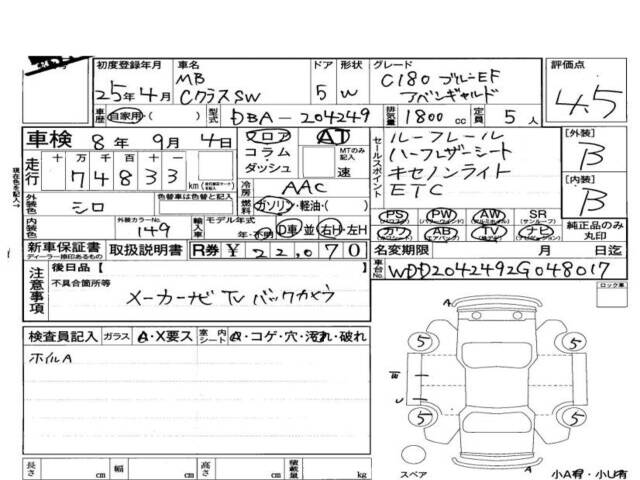 初度登録年月 車名 ドア 形状 グレード 評価点
25年4月 MB CクラスSW 5 W C180 ブルーEF アバンギャルド 4.5
車歴 自家用( ) 型式 DBA-204249 排気量 1800cc 定員 5人
車検 8年9月4日 フロア・コラム・ダッシュ AT MTのみ記入 速
セールスポイント ルーフレール
ハーフレザーシート
キセノンライト
ETC
[外装] B
[内装] B
走行 十万 千百十 74833 km
現在色を記入→
冷房 AAC
外装色 シロ 色替車は色替と記入
燃料 ガソリン・軽油・( )
PS PW AW SR(サンルーフ)
カワ AB TV ナビ
純正品のみ丸印
内装色 外装カラーNo. 149 輸入車 モデル年式 年・不明 D車 並 右H・左H
新車保証書 ディーラー捺印あるもの 取扱説明書 R券 ¥ 22,070
名変期限 月 日迄
車台No. WDD2042492G048017
注意事項 後日品[ ]
不具合箇所等
メーカーナビ TV バックカメラ
ロック車
検査員記入 ガラス A・X要ス 室内シート A・コゲ・穴・汚れ・破れ
ホイルA
A
5 5
U
5 5
A
スペア
小A有・小U有
長さ cm 幅 cm 高さ cm 積載量 kg